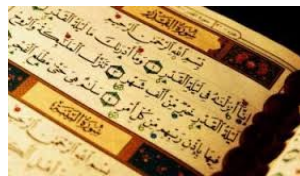 سُورَةُ القَدْرِ
بِسْمِ اللَّهِ الرَّحْمَٰنِ الرَّحِيمِ
إِنَّا أَنزَلْنَٰهُ فِى لَيْلَةِ الْقَدْرِ وَمَا أَدْرَىٰكَ مَا لَيْلَةُ الْقَدْرِ
لَيْلَةُ الْقَدْرِ خَيْرٌ مِّنْ أَلْفِ شَهْرٍ تَنَزَّلُ الْمَلَٰئِكَةُ وَالرُّوحُ
فِيهَا بِإِذْنِ رَبِّهِم مِّن كُلِّ أَمْرٍ سَلَٰمٌ هِىَ حَتَّىٰ مَطْلَعِ الْفَجْرِ
سُورَةُ البَيِّنَةِ
بِسْمِ اللَّهِ الرَّحْمَٰنِ